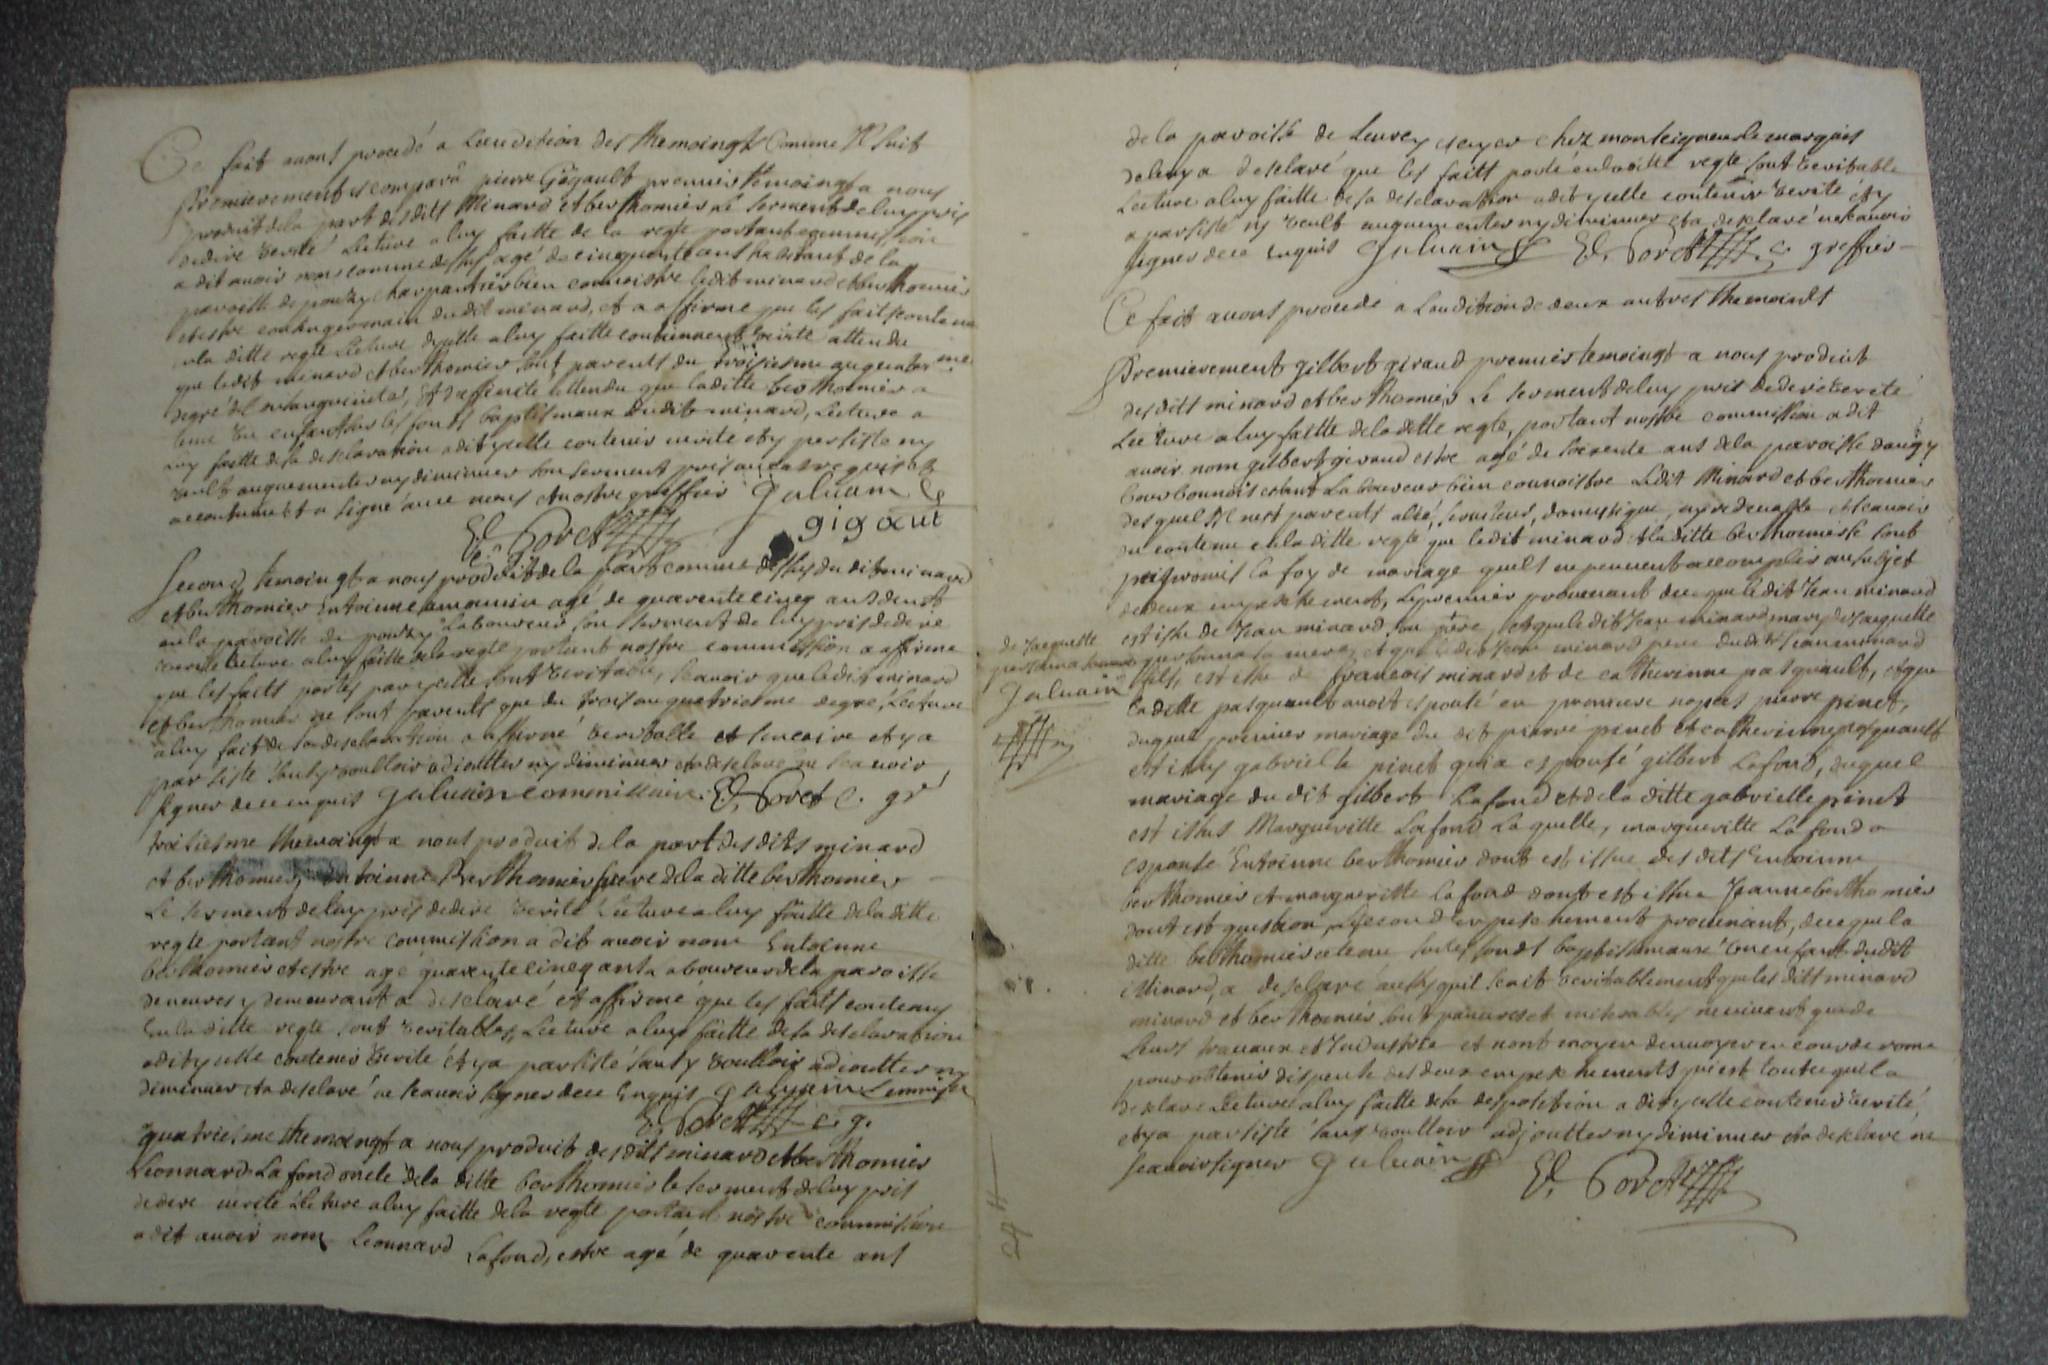 Ce fait avons procedé a Laudition des themoingts Comme Il suit
Premierement est comparü pierre Gëgault premier temoingt a nous
produit de la part desdits Minard et berthomier le serment de luy pris
de dire verité Lecture a luy faitte de la regte portant commission
a dit avoir nom comme dessus agé de cinquante ans habitant de la
paroisse de pouzy charpantier bien connoistre ledit minard et berthomier
et estre cousin germain dudit minard, et a affirmé que les faits contenu
en la ditte regte Lecture dycelle a luy faitte contiennent verité attendu
que ledit minard et berthomier sont parents du troisiesme au quatriesme
degré de consanguinité, et d'affinité attendu que laditte berthomier a
tenu un enfant sur les fonds baptismaux dudit minard, Lecture a
luy faitte de sa desclaration a dit ycelle contenir verité et y persiste ny
veult auquementer ny diminuer son serment pris au cas requis et
accoutumé et a signé avec nous et nostre greffier Galuain C
E. Poret gigaut
Second temoingt a nous produit de la part comme dessus du dit minard
et berthomier Entoinne amamin agé de quarente cincq ans demt
en la paroisse de pouzy Laboureur son serment de luy pris de dire
verité Lecture a luy faitte de la regte portant nostre commission a affirmé
que les faits portés par ycelle sont veritable, scavoir que ledit minard
et berthomier ne sont parents que du trois au quatriesme degré, Lecture
a luy fait de sa desclaration a affirmé veritable et sincaire et y a
parsisté sans y voulloir adioutter ny diminuer et a desclaré ne scavoir
signer de ce enquis Galuain commissaire. E. Poret c. gr
troisiesme themoingt a nous produit de la part des dits minard
et berthomier, Entoinne Berthomier frere de la ditte berthomier
Le serment de luy pris de dire verité Lecture a luy faitte de la ditte
regte portant nostre commission a dit avoir nom Entoinne
berthomier et estre agé quarente cincq ans Laboureur de la paroisse
de neuresy demeurant a desclaré et affirmé que les faits contenus
En la ditte regte sont veritables, Lecture a luy faitte de sa desclaration
a dit ycelle contenir verité et y a parsisté sans y voulloir adioutter ny
diminuer et a desclaré ne scavoir signer de ce Enquis Galuain Commissr
E. Poret c. g.
quatriesme themoingt a nous produit des dits minard et berthomier
Leonnard Lafond oncle de la ditte berthomier le serment de luy pris
de dire verité Lecture a luy faitte de la regte portant nostre commission
a dit avoir nom Leonnard Lafond, estre agé de quarente ans
de la paroisse de Leurcy chez monseigneur le marquis
de leuy a desclaré que les faits porté en laditte regte sont veritable
Lecture a luy faitte de sa desclaration a dit ycelle contenir verité et y
a parsisté ny veult auquementer ny diminuer et a desclaré ne scavoir
signer de ce enquis Galuain E. Poret c. greffier
Ce fait avons procede a Laudition de deux autres themoints
Premierement gilbert giraud premier temoingt a nous produit
des dits minard et berthomier Le serment de luy pris de dire verité
Lecture a luy faitte de la ditte regte, portant nostre commission a dit
avoir nom gilbert giraud estre agé de soixente ans de la paroisse daugy
bourbonnois estant Laboureur bien connoistre Ledit Minard et berthomier
desquel Il nest parents alié, seruiteur, domestique, ny redeuable et scauoir
du contenu en la ditte regte que ledit minard et la ditte berthomier se sont
promis la foy de mariage quils ne peuuent accomplir au subjet
de deux empeschement, Le premier prouenant de ce que ledit Jean minard
est issu de Jean minard son pere, et que le dit Jean minard mary de Jacquette
personna sa mere, et que ledit Jean minard pere dudit Jean minard
de Jacquette
personna sa mere
Galuain
fils, est issu de francois minard et de catherinne pasquault, et que
la ditte pasquault avoit espousé en premiere nopces pierre pinet,
duquel premier mariage du dit pierre pinet et catherinne pasquault
est issuy gabrielle pinet qui a espousé gilbert Lafond, duquel
mariage du dit gilbert Lafond et de la ditte gabrielle pinet
est issus Margueritte Lafond Laquelle, margueritte Lafond a
espousé Entoinne berthomier dont est issue des dits Entoinne
berthomier et margueritte Lafond dont est issue Jeanne berthomier
dont est question, Le second empeschement prouenant, de ce que la
ditte berthomier a tenu sur les fonds baptismaux un enfant dudit
Minard, a desclaré aussy quil scait veritablement que les dits minard
minard et berthomier sont pauures et miserables ne viuant que de
Leurs trauaux et Industrie et nont moyen denuoyer en cour de rome
pour obtenir dispense des deux empeschements qui est tout ce quil a
desclaré Lecture a luy faitte de sa desposition a dit ycelle contenir verité,
et y a parsisté sans voulloir adjoutter ny diminuer et a desclaré ne
scauoir signer Galuain E. Poret